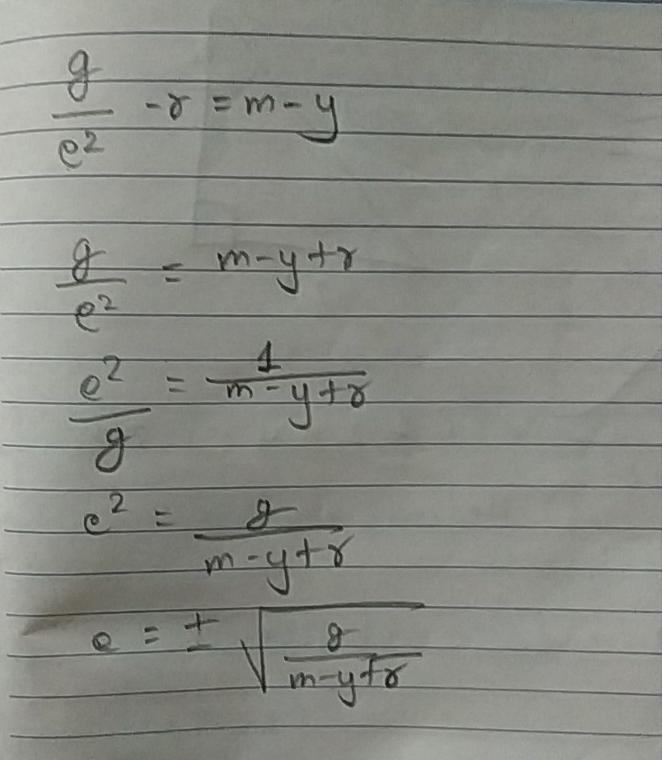 g/e² - r = m - y
g/e² = m - y + r
e²/g = 1/(m - y + r)
e² = g/(m - y + r)
e = ± √(g/(m - y + r))